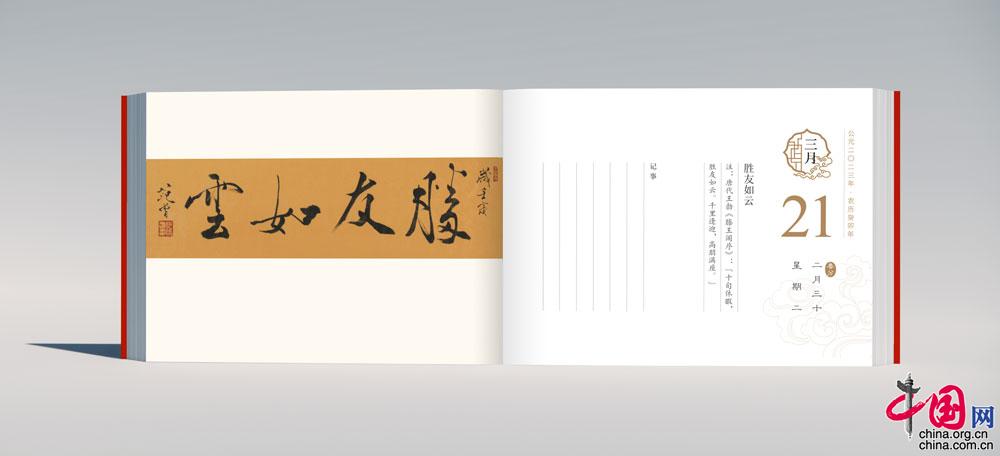 歲壬寅
勝友如雲
范曾
公元二〇二三年·农历癸卯年
三月
21
春分
二月三十
星期二
胜友如云
注：唐代王勃《滕王阁序》：“十旬休暇，
胜友如云。千里逢迎，高朋满座。”
记事
中国网
china.org.cn
china.com.cn